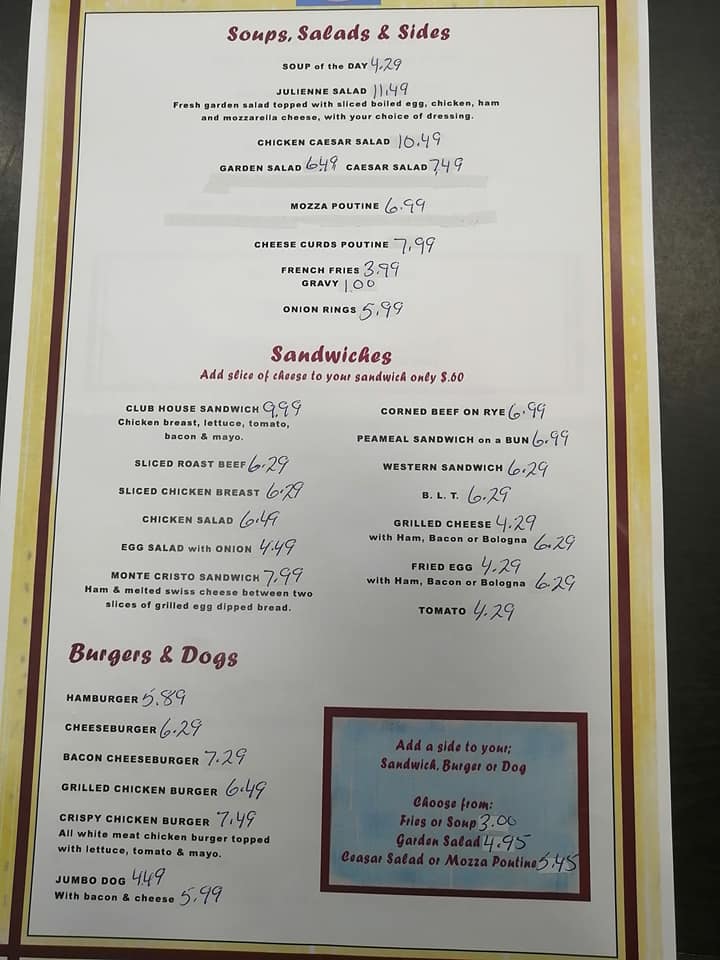 Soups, Salads & Sides
SOUP of the DAY 4.29
JULIENNE SALAD 11.49
Fresh garden salad topped with sliced boiled egg, chicken, ham
and mozzarella cheese, with your choice of dressing.
CHICKEN CAESAR SALAD 10.49
GARDEN SALAD 6.49 CAESAR SALAD 7.49
MOZZA POUTINE 6.99
CHEESE CURDS POUTINE 7.99
FRENCH FRIES 3.99
GRAVY 1.00
ONION RINGS 5.99
Sandwiches
Add slice of cheese to your sandwich only $.60
CLUB HOUSE SANDWICH 9.99
Chicken breast, lettuce, tomato,
bacon & mayo.
SLICED ROAST BEEF 6.29
SLICED CHICKEN BREAST 6.29
CHICKEN SALAD 6.49
EGG SALAD with ONION 4.49
MONTE CRISTO SANDWICH 7.99
Ham & melted swiss cheese between two
slices of grilled egg dipped bread.
CORNED BEEF ON RYE 6.99
PEAMEAL SANDWICH on a BUN 6.99
WESTERN SANDWICH 6.29
B. L. T. 6.29
GRILLED CHEESE 4.29
with Ham, Bacon or Bologna 6.29
FRIED EGG 4.29
with Ham, Bacon or Bologna 6.29
TOMATO 4.29
Burgers & Dogs
HAMBURGER 5.89
CHEESEBURGER 6.29
BACON CHEESEBURGER 7.29
GRILLED CHICKEN BURGER 6.49
CRISPY CHICKEN BURGER 7.49
All white meat chicken burger topped
with lettuce, tomato & mayo.
JUMBO DOG 4.49
With bacon & cheese 5.99
Add a side to your;
Sandwich, Burger or Dog
Choose from:
Fries or Soup 3.00
Garden Salad 4.95
Ceasar Salad or Mozza Poutine 5.45